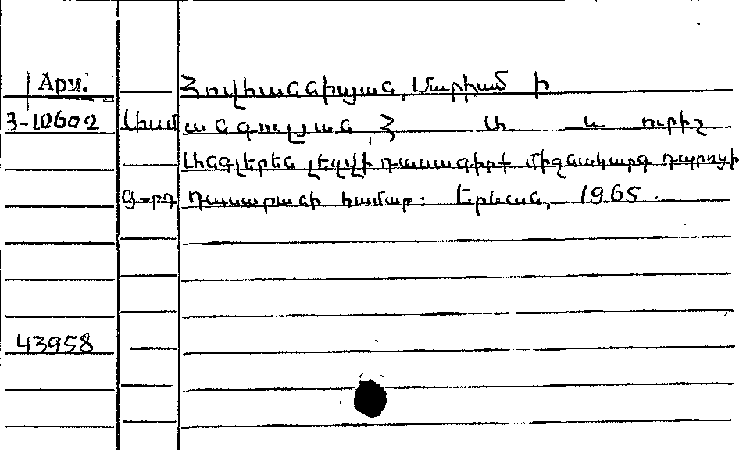 Арм. Հովհաննիսյան, Մարիամ Ի
3-10602 Լիմ անգուլյան Հ Ա և ուրիշ
Անգլերեն լեզվի դասագիրք միջնակարգ դպրոցի
9-րդ դասարանի համար: Երևան, 1965.
43958